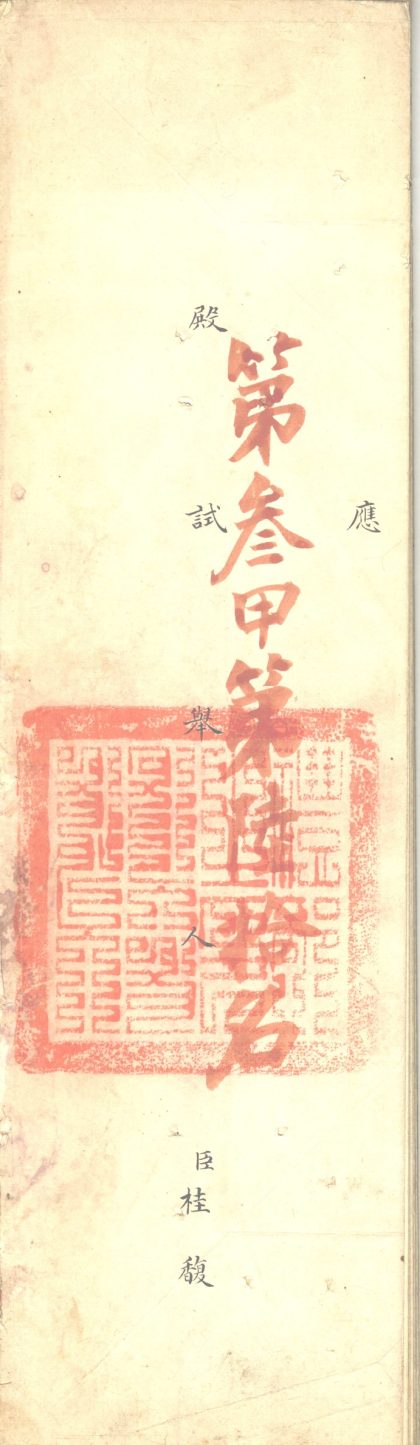 應
殿試舉人臣桂馥
第叄甲第陸拾名